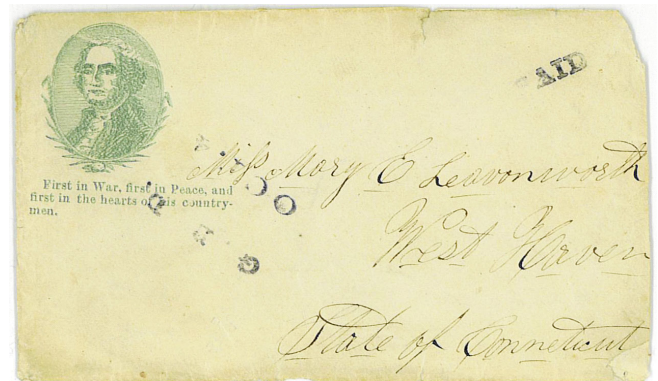 AID
First in War, first in Peace, and
first in the hearts of his country-
men.
Miss Mary E Leavonworth
West Haven
State of Conneticut